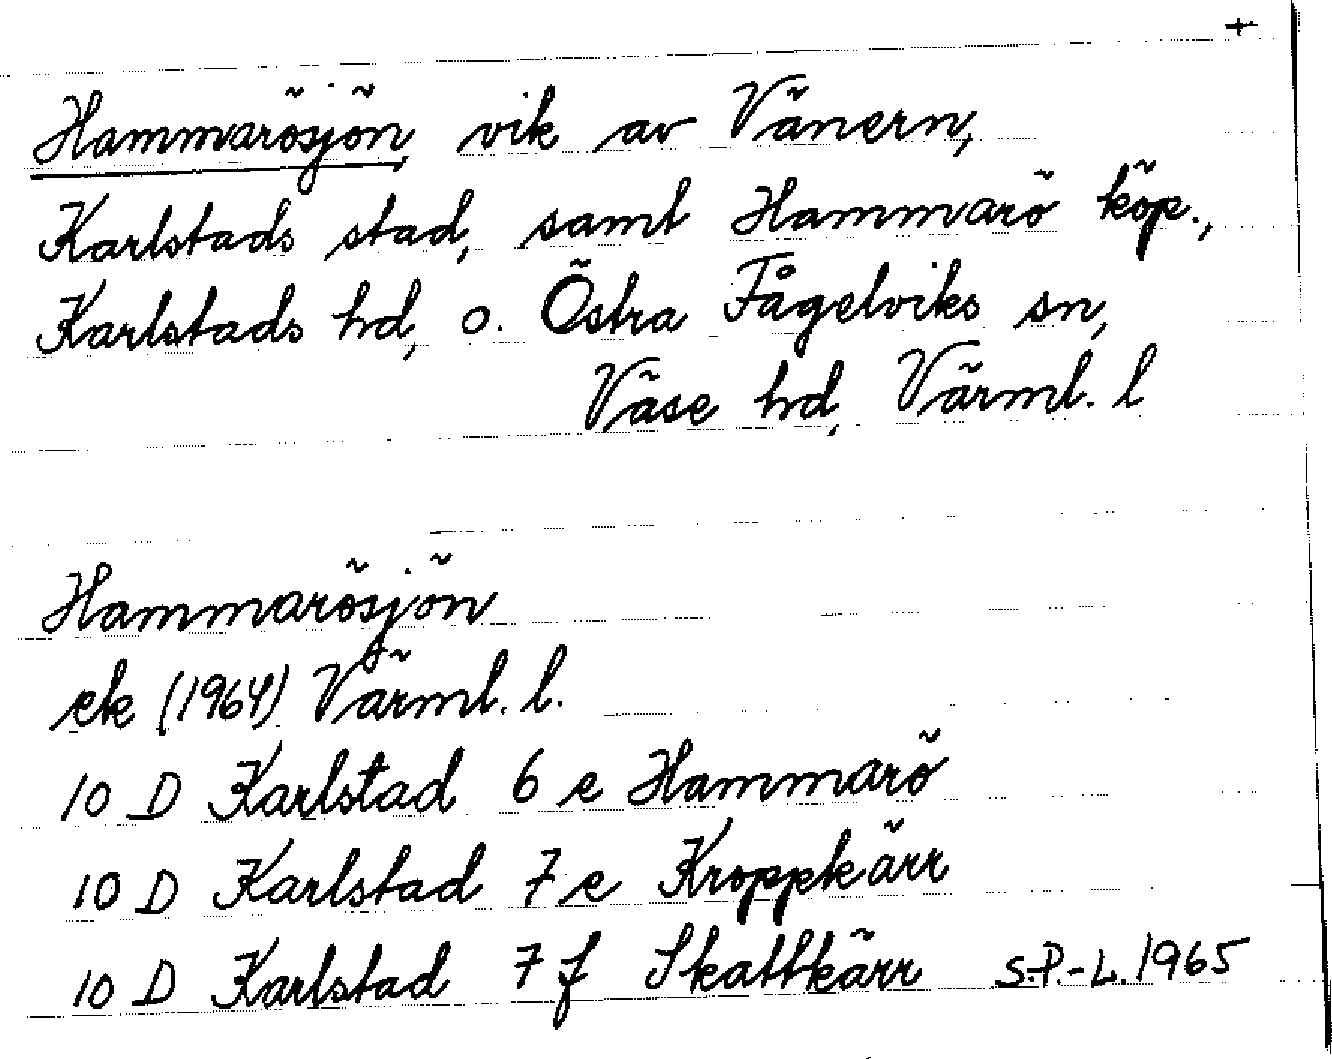 +
Hammarösjön, vik av Vänern,
Karlstads stad, samt Hammarö köp.,
Karlstads hd, o. Östra Fågelviks sn,
Väse hd, Värml. l
Hammarösjön
ek (1964) Värml. l.
10 D Karlstad 6 e Hammarö
10 D Karlstad 7 e Kroppkärr
10 D Karlstad 7 f Skattkärr S.P.-L. 1965